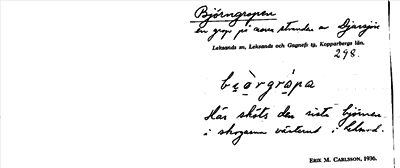 Björngropen
en grop på norra stranden av Djursjön
Leksands sn, Leksands och Gagnefs tg, Kopparbergs län.
298.
bеòrgròpa
Här sköts den sista björnen
i skogarna västerut i
ERIK M. CARLSSON, 1936.